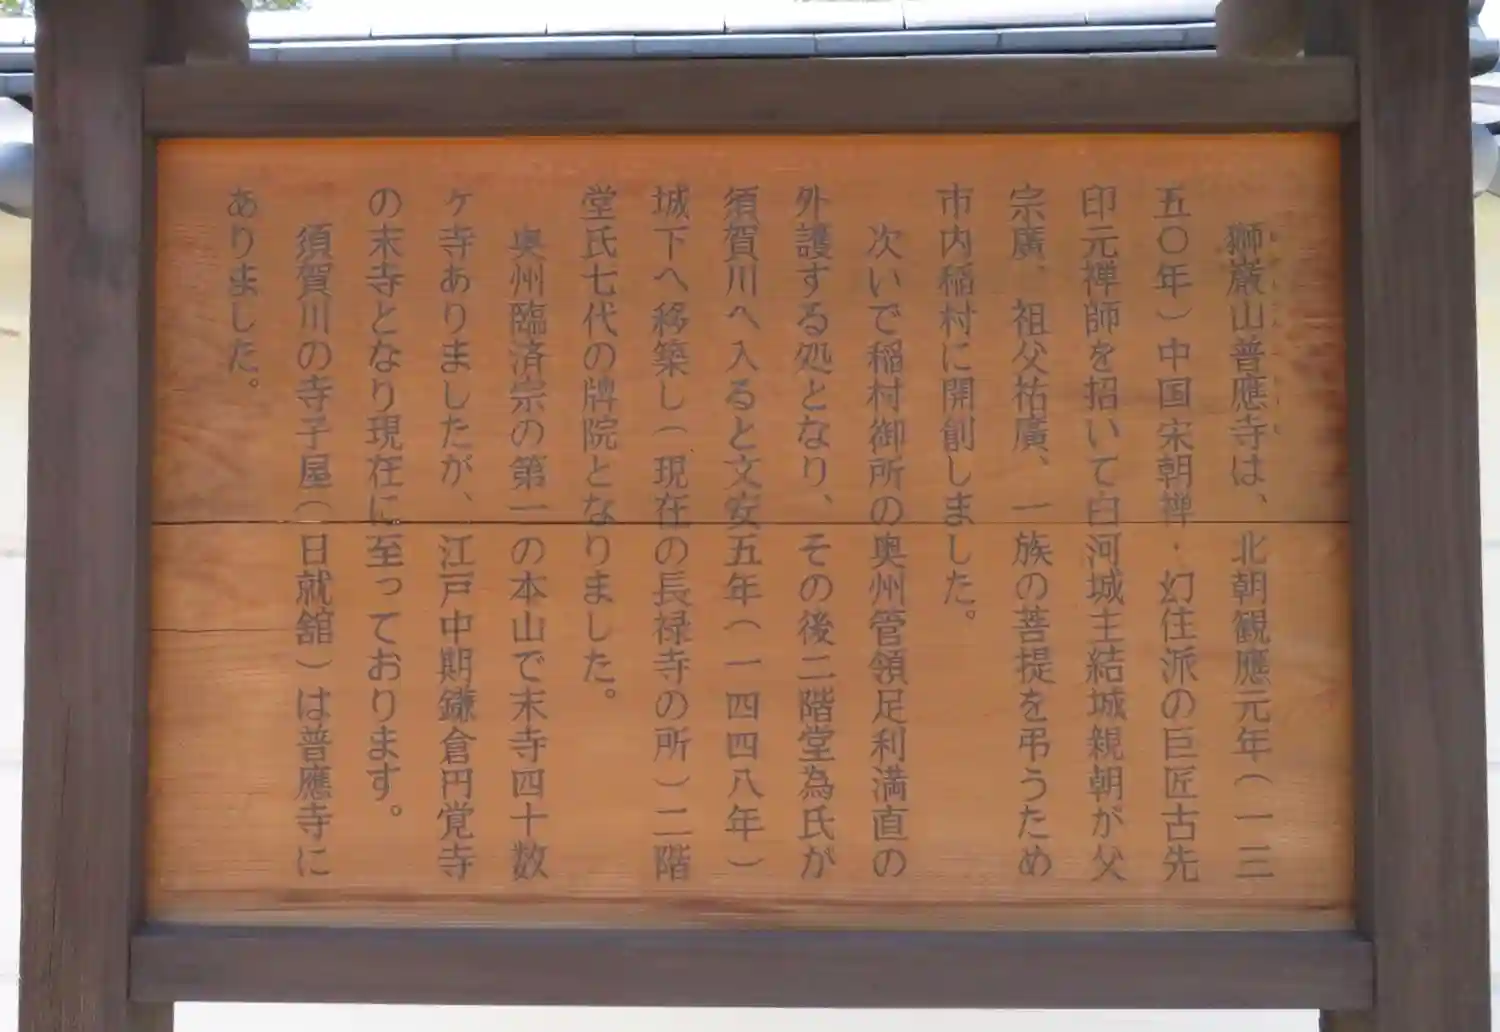 獅巌山普應寺は、北朝観應元年（一三
五〇年）中国宋朝禅・幻住派の巨匠古先
印元禅師を招いて白河城主結城親朝が父
宗廣、祖父祐廣、一族の菩提を弔うため
市内稲村に開創しました。
次いで稲村御所の奥州管領足利満直の
外護する処となり、その後二階堂為氏が
須賀川へ入ると文安五年（一四四八年）
城下へ移築し（現在の長禄寺の所）二階
堂氏七代の牌院となりました。
奥州臨済宗の第一の本山で末寺四十数
ヶ寺ありましたが、江戸中期鎌倉円覚寺
の末寺となり現在に至っております。
須賀川の寺子屋（日就舘）は普應寺に
ありました。